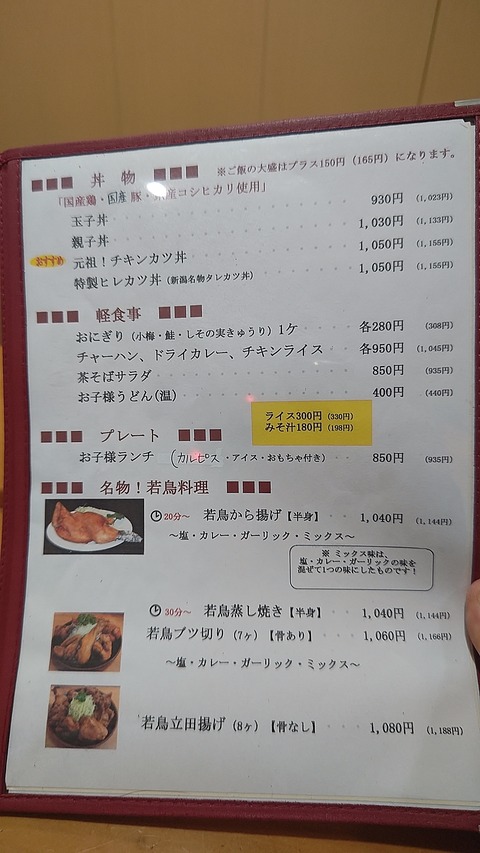 ■■■ 丼物 ■■■ ※ご飯の大盛はプラス150円（165円）になります。
「国産鶏・国産豚・ 産コシヒカリ使用」
玉子丼 930円 (1,023円)
親子丼 1,030円 (1,133円)
おすすめ 元祖！チキンカツ丼 1,050円 (1,155円)
特製ヒレカツ丼（新潟名物タレカツ丼） 1,050円 (1,155円)
■■■ 軽食事 ■■■
おにぎり（小梅・鮭・しその実きゅうり）1ケ 各280円 (308円)
チャーハン、ドライカレー、チキンライス 各950円 (1,045円)
茶そばサラダ 850円 (935円)
お子様うどん(温) 400円 (440円)
ライス300円 (330円)
みそ汁180円 (198円)
■■■ プレート ■■■
お子様ランチ （カルピス・アイス・おもちゃ付き） 850円 (935円)
■■■ 名物！若鳥料理 ■■■
20分～ 若鳥から揚げ【半身】 1,040円 (1,144円)
～塩・カレー・ガーリック・ミックス～
※ ミックス味は、
塩・カレー・ガーリックの味を
混ぜて1つの味にしたものです！
30分～ 若鳥蒸し焼き【半身】 1,040円 (1,144円)
若鳥ブツ切り（7ヶ）【骨あり】 1,060円 (1,166円)
～塩・カレー・ガーリック・ミックス～
若鳥立田揚げ（8ヶ）【骨なし】 1,080円 (1,188円)